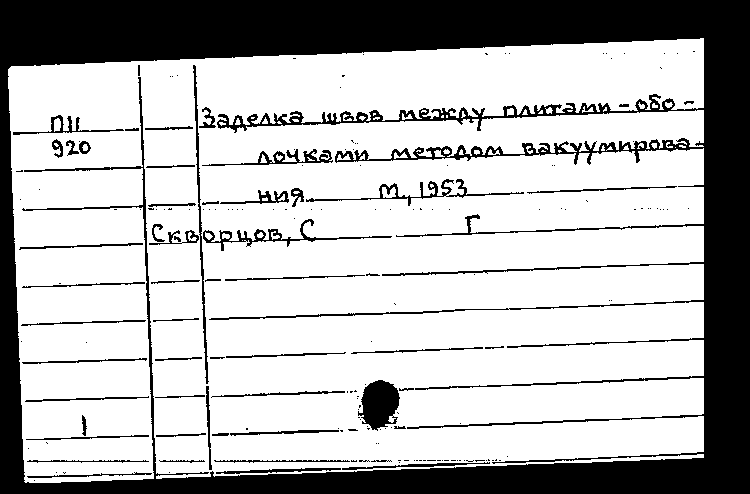 П11
920
Заделка швов между плитами-обо-
лочками методом вакуумирова-
ния. М., 1953
Скворцов, С Г
1